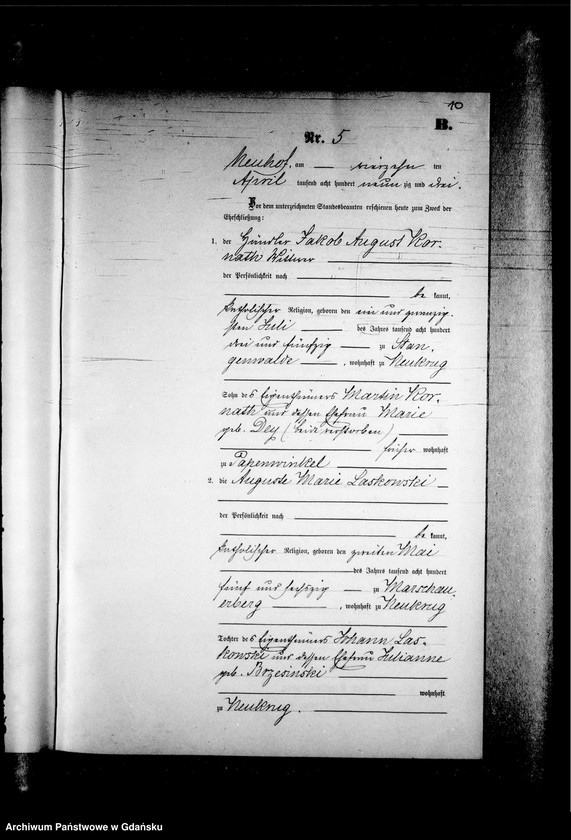 10
B.
Nr. 5
Neuhof, am vierzehn ten
April tausend acht hundert neunzig und drei.
Vor dem unterzeichneten Standesbeamten erschienen heute zum Zweck der
Eheschließung:
1. der Händler Jakob August Kor-
nath Wittwer
der Persönlichkeit nach
be kannt,
katholischer Religion, geboren den ein und zwanzig-
sten Juli des Jahres tausend acht hundert
drei und fünfzig zu Stan-
genwalde, wohnhaft zu Neukrug
Sohn des Eigenthümers Martin Kor-
nath und dessen Ehefrau Marie
geb. Dey (beide verstorben)
früher wohnhaft
zu Papenwinkel
2. die Auguste Marie Laskowski
der Persönlichkeit nach
be kannt,
katholischer Religion, geboren den zweiten Mai
des Jahres tausend acht hundert
fünf und sechszig zu Marschau-
erberg, wohnhaft zu Neukrug
Tochter des Eigenthümers Johann Las-
kowski und dessen Ehefrau Julianne
geb. Brzesinski
wohnhaft
zu Neukrug.
Archiwum Państwowe w Gdańsku